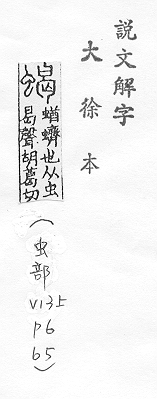 説文解字
大徐本
蝎 蝤蠐也从虫
曷聲胡葛切
(虫部
V13上
P6
65)